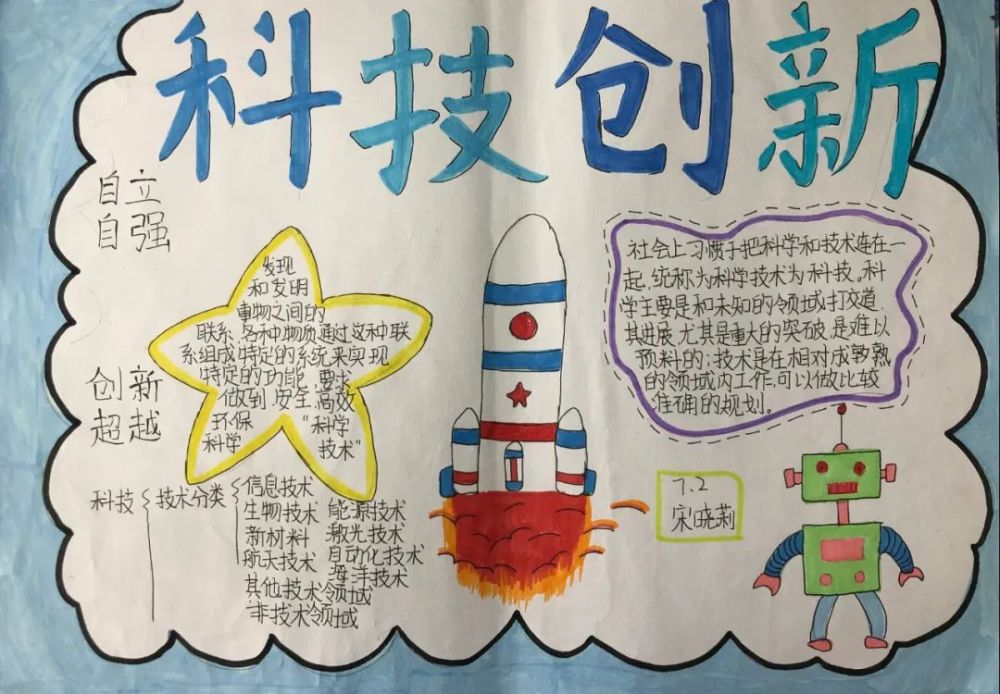 科技创新
自立
自强
发现
和发明
事物之间的
联系,各种物质通过这种联
系组成特定的系统来实现
特定的功能,要求
做到安全,高效
环保 "科学
科学 技术"
创新
超越
社会上习惯于把科学和技术连在一
起,统称为科学技术为科技。科
学主要是和未知的领域打交道,
其进展,尤其是重大的突破,是难以
预料的;技术是在相对成熟
的领域内工作,可以做比较
准确的规划。
科技 技术分类
信息技术
生物技术 能源技术
新材料 激光技术
航天技术 自动化技术
海洋技术
其他技术领域
非技术领域
7.2
宋晓莉